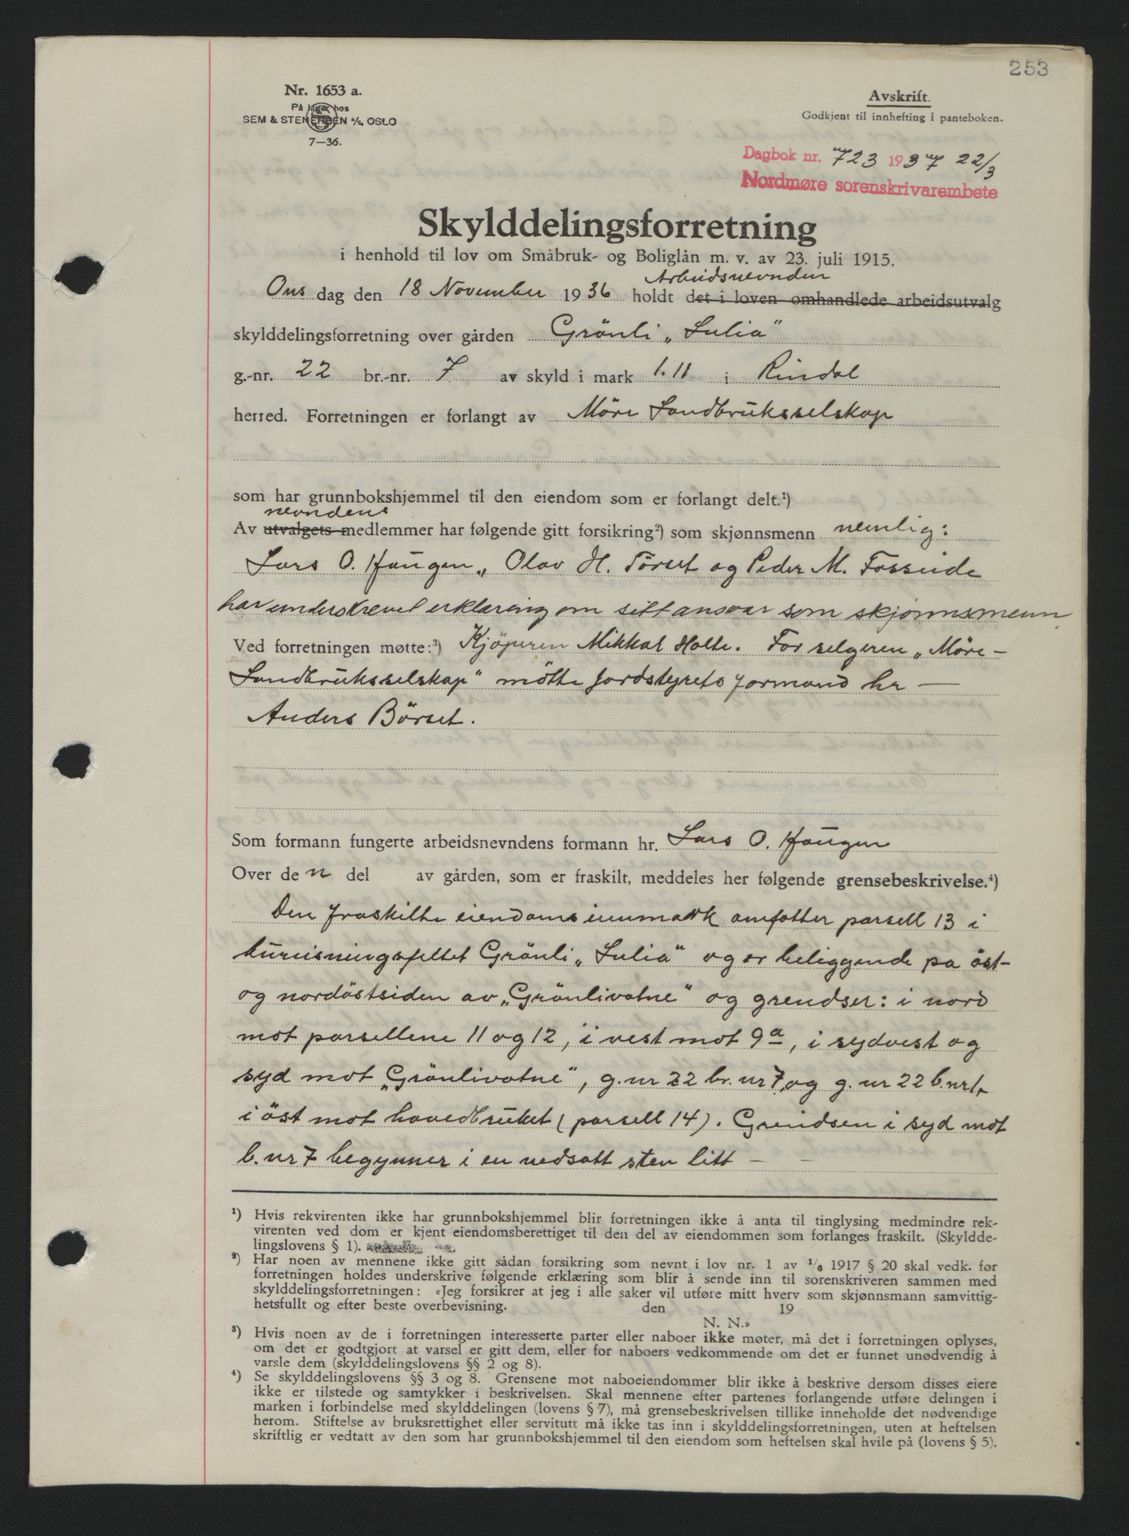 253
Nr. 1653 a.
På lager hos
SEM & STENERSEN A/S, OSLO
7—36.
Avskrift.
Godkjent til innhefting i panteboken.
Dagbok nr. 723 1937 22/3
Nordmøre sorenskrivarembete
Skylddelingsforretning
i henhold til lov om Småbruk- og Boliglån m. v. av 23. juli 1915.
Arbeidsnevnden
Ons dag den 18 November 1936 holdt det i loven omhandlede arbeidsutvalg
skylddelingsforretning over gården Grönli „Sulia"
g.-nr. 22 br.-nr. 7 av skyld i mark 1.11 i Rindal
herred. Forretningen er forlangt av Möre Landbruksselskap
som har grunnbokshjemmel til den eiendom som er forlangt delt.¹)
nevndens
Av utvalgets medlemmer har følgende gitt forsikring²) som skjønnsmenn nemlig:
Lars O. Haugen, Olav H. Törset og Peder M. Fosseide
har underskrevet erklæring om sitt ansvar som skjønnsmenn
Ved forretningen møtte:³) Kjöperen Mikkal Holte. For selgeren „Möre-
Landbruksselskap" mötte Jordstyrets formand hr —
Anders Börset.
Som formann fungerte arbeidsnevndens formann hr. Lars O. Haugen
Over de n del av gården, som er fraskilt, meddeles her følgende grensebeskrivelse.⁴)
Den fraskilte eiendoms innmark omfatter parsell 13 i
bureisningsfeltet Grönli „Sulia" og er beliggende på öst-
og nordöstsiden av „Grönlivatne" og grendser: i nord
mot parsellene 11 og 12, i vest mot 9a, i sydvest og
syd mot „Grönlivatne", g.nr 22 br.nr 7 og g.nr 22 b.nr 1,
i öst mot hovedbruket (parsell 14). Grendsen i syd mot
b.nr 7 begynner i en nedsatt sten litt —
¹) Hvis rekvirenten ikke har grunnbokshjemmel blir forretningen ikke å anta til tinglysing medmindre rek-
virenten ved dom er kjent eiendomsberettiget til den del av eiendommen som forlanges fraskilt. (Skyldde-
lingslovens § 1).
²) Har noen av mennene ikke gitt sådan forsikring som nevnt i lov nr. 1 av 1/6 1917 § 20 skal vedk. før
forretningen holdes underskrive følgende erklæring som blir å sende inn til sorenskriveren sammen med
skylddelingsforretningen: «Jeg forsikrer at jeg i alle saker vil utføre mitt hverv som skjønnsmann samvittig-
hetsfullt og efter beste overbevisning. den 19
N. N.»
³) Hvis noen av de i forretningen interesserte parter eller naboer ikke møter, må det i forretningen oplyses,
om det er godtgjort at varsel er gitt dem, eller for naboers vedkommende om det er funnet unødvendig å
varsle dem (skylddelingslovens §§ 2 og 8).
⁴) Se skylddelingslovens §§ 3 og 8. Grensene mot naboeiendommer blir ikke å beskrive dersom disses eiere
ikke er tilstede og samtykker i beskrivelsen. Skal mennene efter partenes forlangende utføre delingen i
marken i forbindelse med skylddelingen (lovens § 7), må grensebeskrivelsen tillike inneholde det nødvendige
herom. Stiftelse av bruksrettighet eller servitutt må ikke tas inn i skylddelingsforretningen, uten at heftelsen
skriftlig er vedtatt av den som har grunnbokshjemmel til den eiendom som heftelsen skal hvile på (lovens § 5).